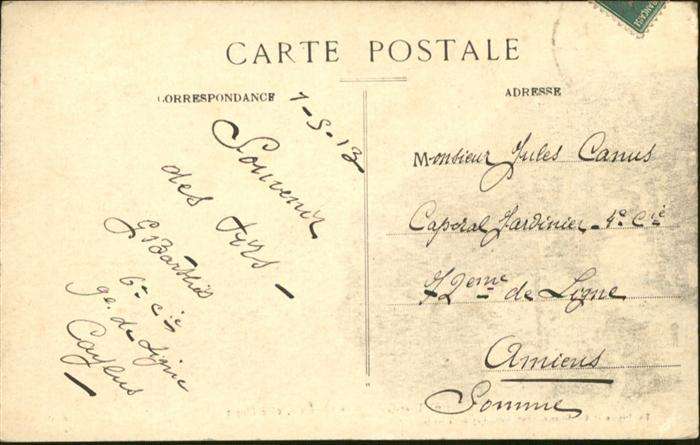 CARTE POSTALE
CORRESPONDANCE
7-5-13
Souvenir
des tirs -
G Barthès
6e Cie
9e. de Ligne
Caylus
ADRESSE
Monsieur Jules Canus
Caporal Jardinier - 4e Cie
72eme de Ligne
Amiens
Somme